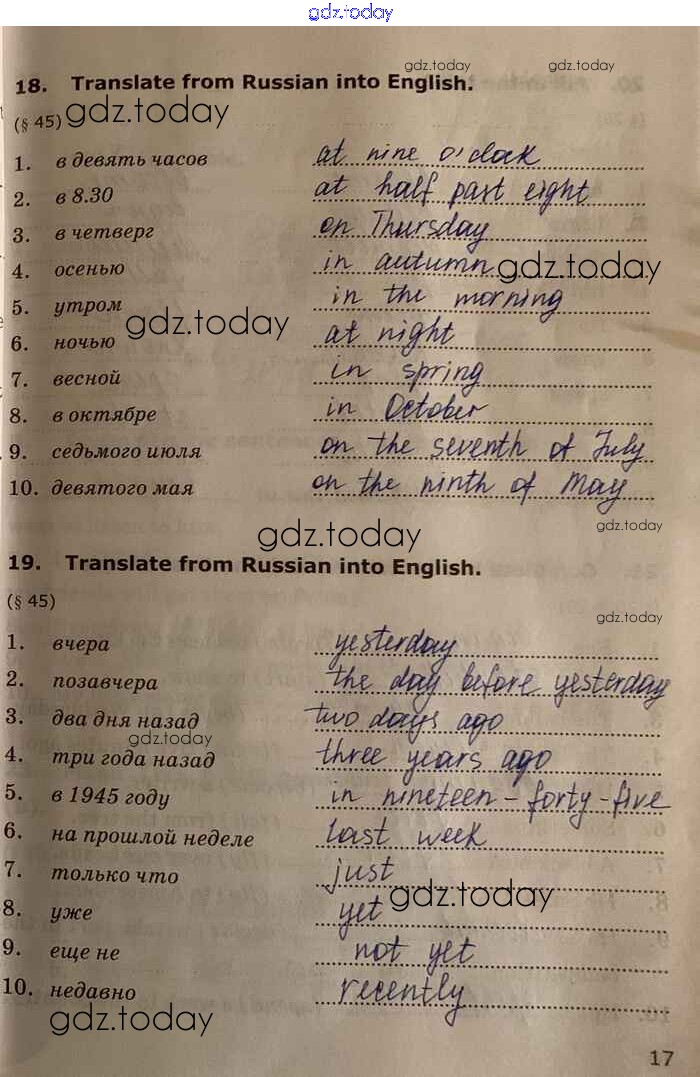 gdz.today
gdz.today gdz.today
18. Translate from Russian into English.
(§ 45) gdz.today
1. в девять часов at nine o'clock
2. в 8.30 at half past eight
3. в четверг on Thursday
4. осенью in autumn gdz.today
5. утром in the morning
gdz.today
6. ночью at night
7. весной in spring
8. в октябре in October
9. седьмого июля on the seventh of July
10. девятого мая on the ninth of May
gdz.today gdz.today
19. Translate from Russian into English.
(§ 45)
gdz.today
1. вчера yesterday
2. позавчера the day before yesterday
3. два дня назад two days ago
gdz.today
4. три года назад three years ago
5. в 1945 году in nineteen-forty-five
6. на прошлой неделе last week
7. только что just
gdz.today
8. уже yet
9. еще не not yet
10. недавно recently
gdz.today gdz.today
17